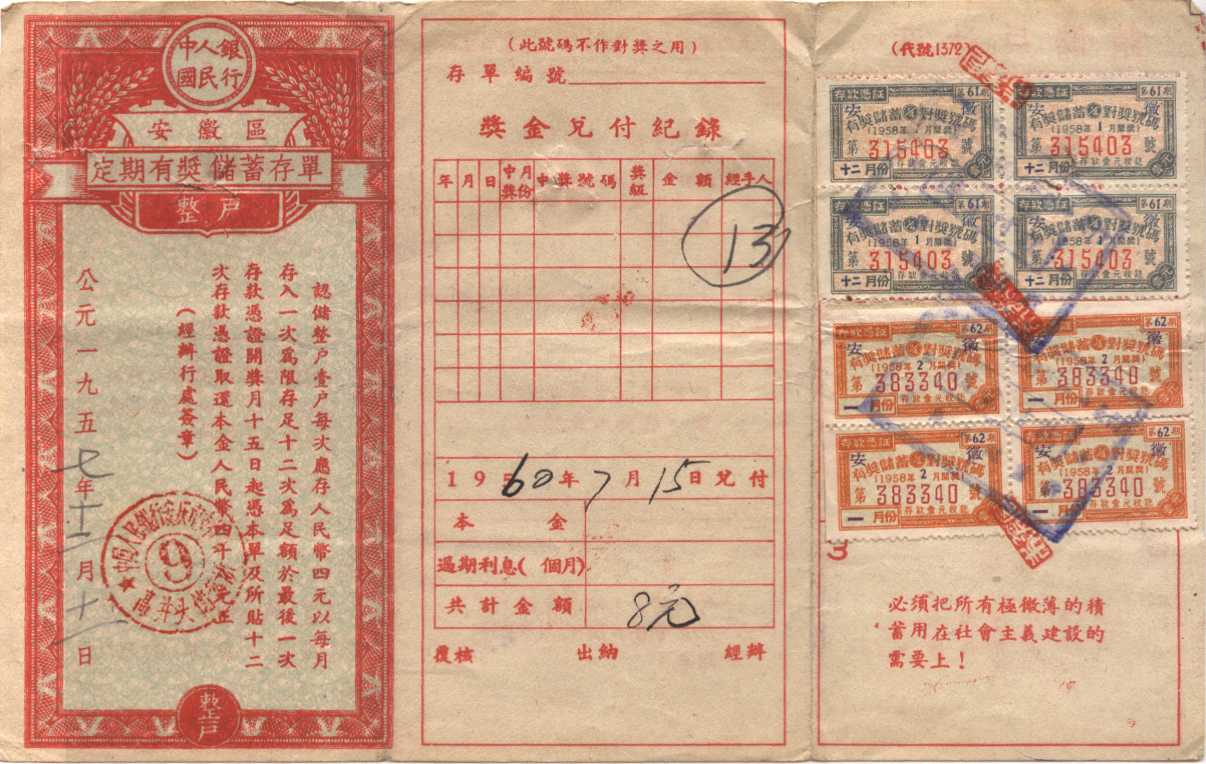 中國人民銀行
安徽區
定期有獎儲蓄存單
整戶
認儲整户壹户每次應存人民幣四元以每月
存入一次為限存足十二次為足額於最後一次
存款憑證開獎月十五日起憑本單及所貼十二
次存款憑證取還本金人民幣四
(經辦行處簽章)
公元一九五七年十二月十一日
9
整戶
(此號碼不作對獎之用)
存單編號
獎金兌付紀錄
年 月 日 中獎月份 中獎號碼 獎組 金額 經手人
13
1960年7月15日兌付
本金
過期利息( 個月)
共計金額 8元
覆核 出納 經辦
(代號1372)
存款憑証 第61期
安徽
有獎儲蓄對獎號碼
(1958年1月開獎)
第315403號
十二月份 存款壹元收訖
存款憑証 第61期
安徽
有獎儲蓄對獎號碼
(1958年1月開獎)
第315403號
十二月份 存款壹元收訖
存款憑証 第61期
安徽
有獎儲蓄對獎號碼
(1958年1月開獎)
第315403號
十二月份 存款壹元收訖
存款憑証 第61期
安徽
有獎儲蓄對獎號碼
(1958年1月開獎)
第315403號
十二月份 存款壹元收訖
存款憑証 第62期
安徽
有獎儲蓄對獎號碼
(1958年2月開獎)
第383340號
一月份 存款壹元收訖
存款憑証 第62期
安徽
有獎儲蓄對獎號碼
(1958年2月開獎)
第383340號
一月份 存款壹元收訖
存款憑証 第62期
安徽
有獎儲蓄對獎號碼
(1958年2月開獎)
第383340號
一月份 存款壹元收訖
存款憑証 第62期
安徽
有獎儲蓄對獎號碼
(1958年2月開獎)
第383340號
一月份 存款壹元收訖
3
必須把所有極微薄的積
蓄用在社會主義建設的
需要上!